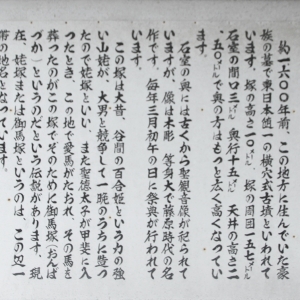 約一六〇〇年前、この地方に住んでいた豪
族の墓で東日本随一の横穴式古墳といわれて
います。塚の高さ二〇㍍、塚の周囲一五七㍍
石室の間口三㍍、奥行十五㍍、天井の高さ二
、五〇㍍で奥の方はもっと広く高くなってい
ます。
石室の奥には古くから聖観音像が祀られて
いますが、像は木彫、等身大で藤原時代の名
作です。毎年三月初午の日に祭典が行われて
います。
この塚は大昔、谷間の百合姫という力の強
い山姥が、大男と競争して一晩のうちに造っ
たので姥塚といい、また聖徳太子が甲斐に入
ったとき、この地で愛馬がたおれ、その馬を
葬ったのがこの塚でそのために御馬塚(おんば
づか)というのだという伝説があります。現
在、姥塚または御馬塚というのは、この辺一
帯の地名となっています。